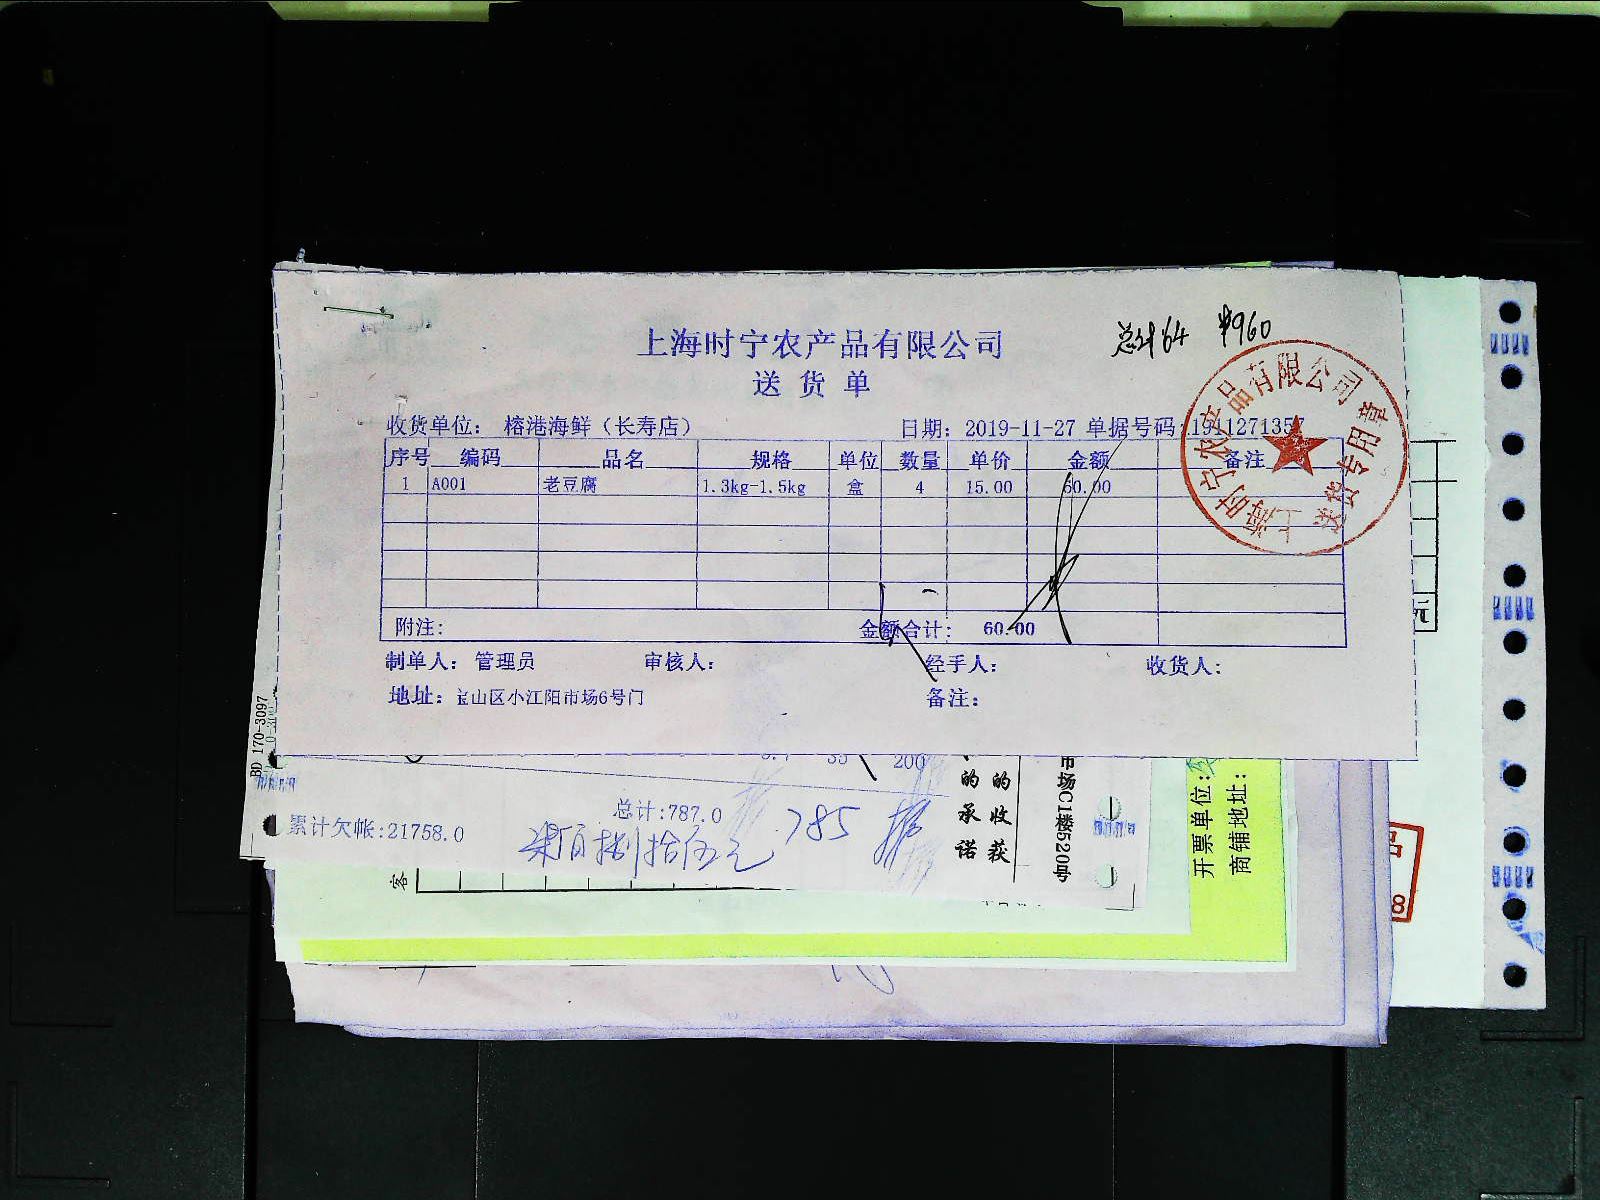 总计64 ¥960
上海时宁农产品有限公司
送货单
收货单位： 榕港海鲜（长寿店） 日期：2019-11-27 单据号码：1911271357
序号 编码 品名 规格 单位 数量 单价 金额 备注
1 A001 老豆腐 1.3kg-1.5kg 盒 4 15.00 60.00
附注： 金额合计： 60.00
制单人：管理员 审核人： 经手人： 收货人：
地址：宝山区小江阳市场6号门 备注：
上海时宁农产品有限公司
送货专用章
BD 170-3097
200
总计:787.0
累计欠帐:21758.0
柒佰捌拾伍元 785
的承诺
的收获
市场C1楼520号
开票单位：
商铺地址：
客
元
8